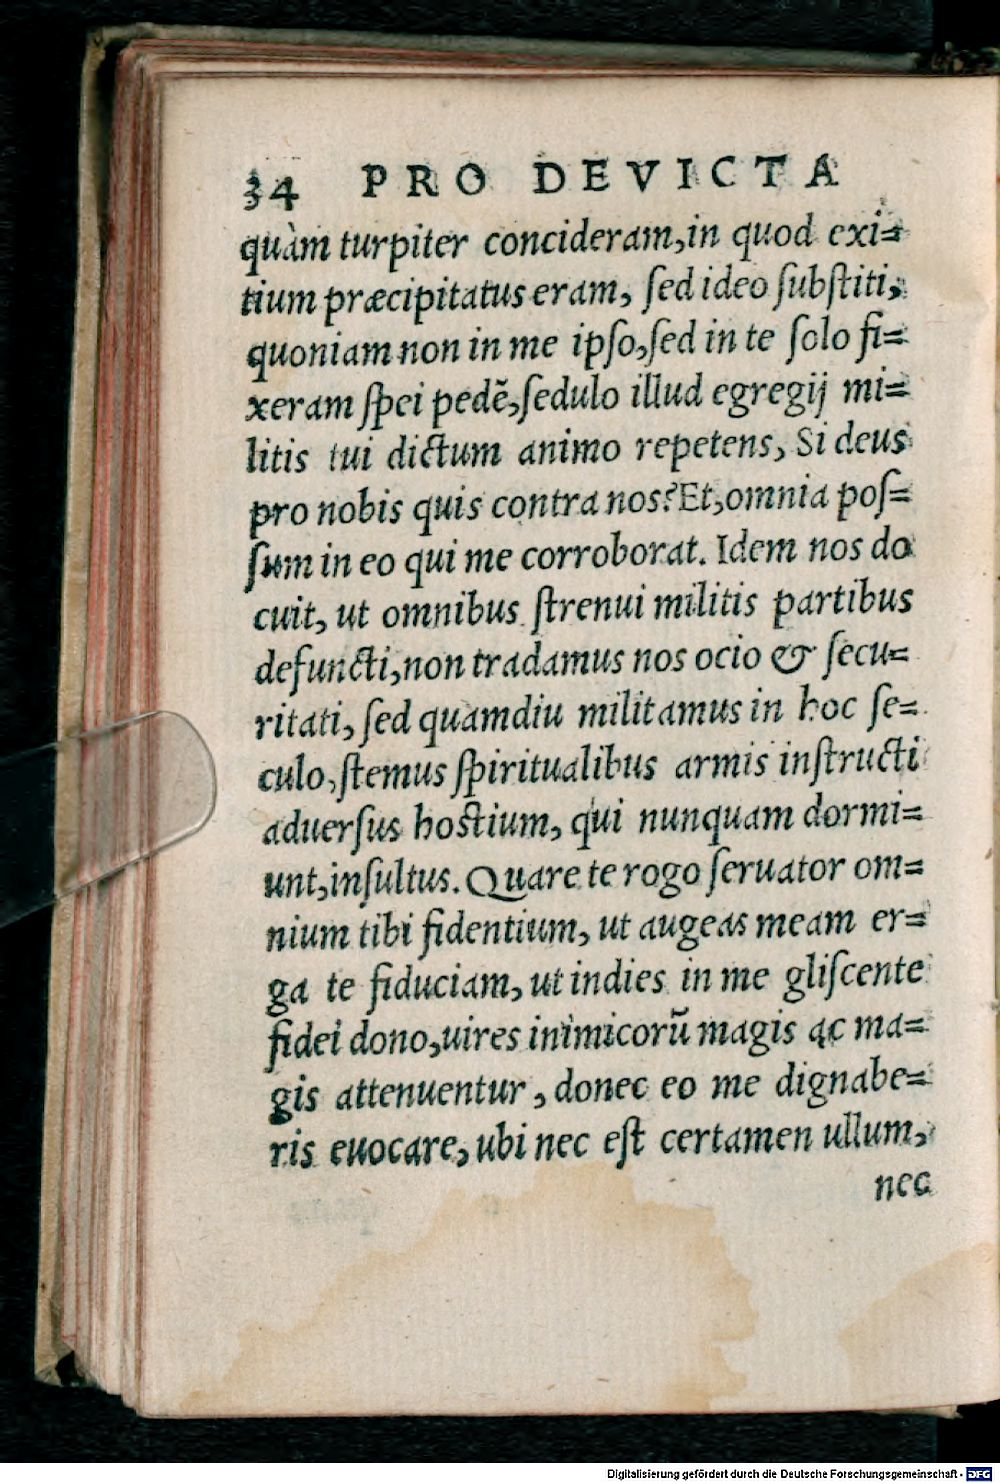 34 PRO DEVICTA
quàm turpiter concideram, in quod exi=
tium præcipitatus eram, ſed ideo ſubſtiti,
quoniam non in me ipſo, ſed in te ſolo fi=
xeram ſpei pedẽ, ſedulo illud egregij mi=
litis tui dictum animo repetens, Si deus
pro nobis quis contra nos? Et, omnia poſ=
ſum in eo qui me corroborat. Idem nos do
cuit, ut omnibus ſtrenui militis partibus
defuncti, non tradamus nos ocio & ſecu=
ritati, ſed quamdiu militamus in hoc ſe=
culo, ſtemus ſpiritualibus armis inſtructi
aduerſus hoſtium, qui nunquam dormi=
unt, inſultus. Quare te rogo ſeruator om=
nium tibi fidentium, ut augeas meam er=
ga te fiduciam, ut indies in me gliſcente
fidei dono, uires inimicorũ magis ac ma=
gis attenuentur, donec eo me dignabe=
ris euocare, ubi nec eſt certamen ullum,
nec
Digitalisierung gefördert durch die Deutsche Forschungsgemeinschaft - DFG